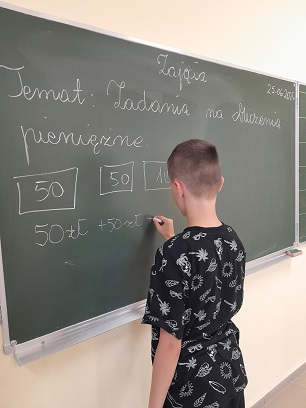 Zajęcia
25.06.20
Temat: Zadania na obliczenia
pieniężne
50 50 10
50zł +50zł =